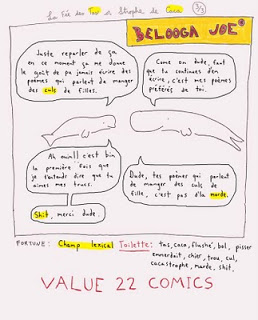 La Fée des Tas et Strophe de Caca 3/3
BELOOGA JOE
Juste reparler de ça
en ce moment ça me donne
le goût de pu jamais écrire des
poèmes qui parlent de manger
des culs de filles.
Come on dude, faut
que tu continues d'en
écrire, c'est mes poèmes
préférés de toi.
Ah min!! c'est bin
la première fois que
je t'entends dire que tu
aimes mes trucs.
Shit, merci dude.
Dude, tes poèmes qui parlent
de manger des culs de
fille, c'est pas d'la marde.
FORTUNE: Champ lexical Toilette: tas, caca, flushé, bol, pisser
emmerdait, chier, trou, cul,
cacastrophe, marde, shit,
VALUE 22 COMICS